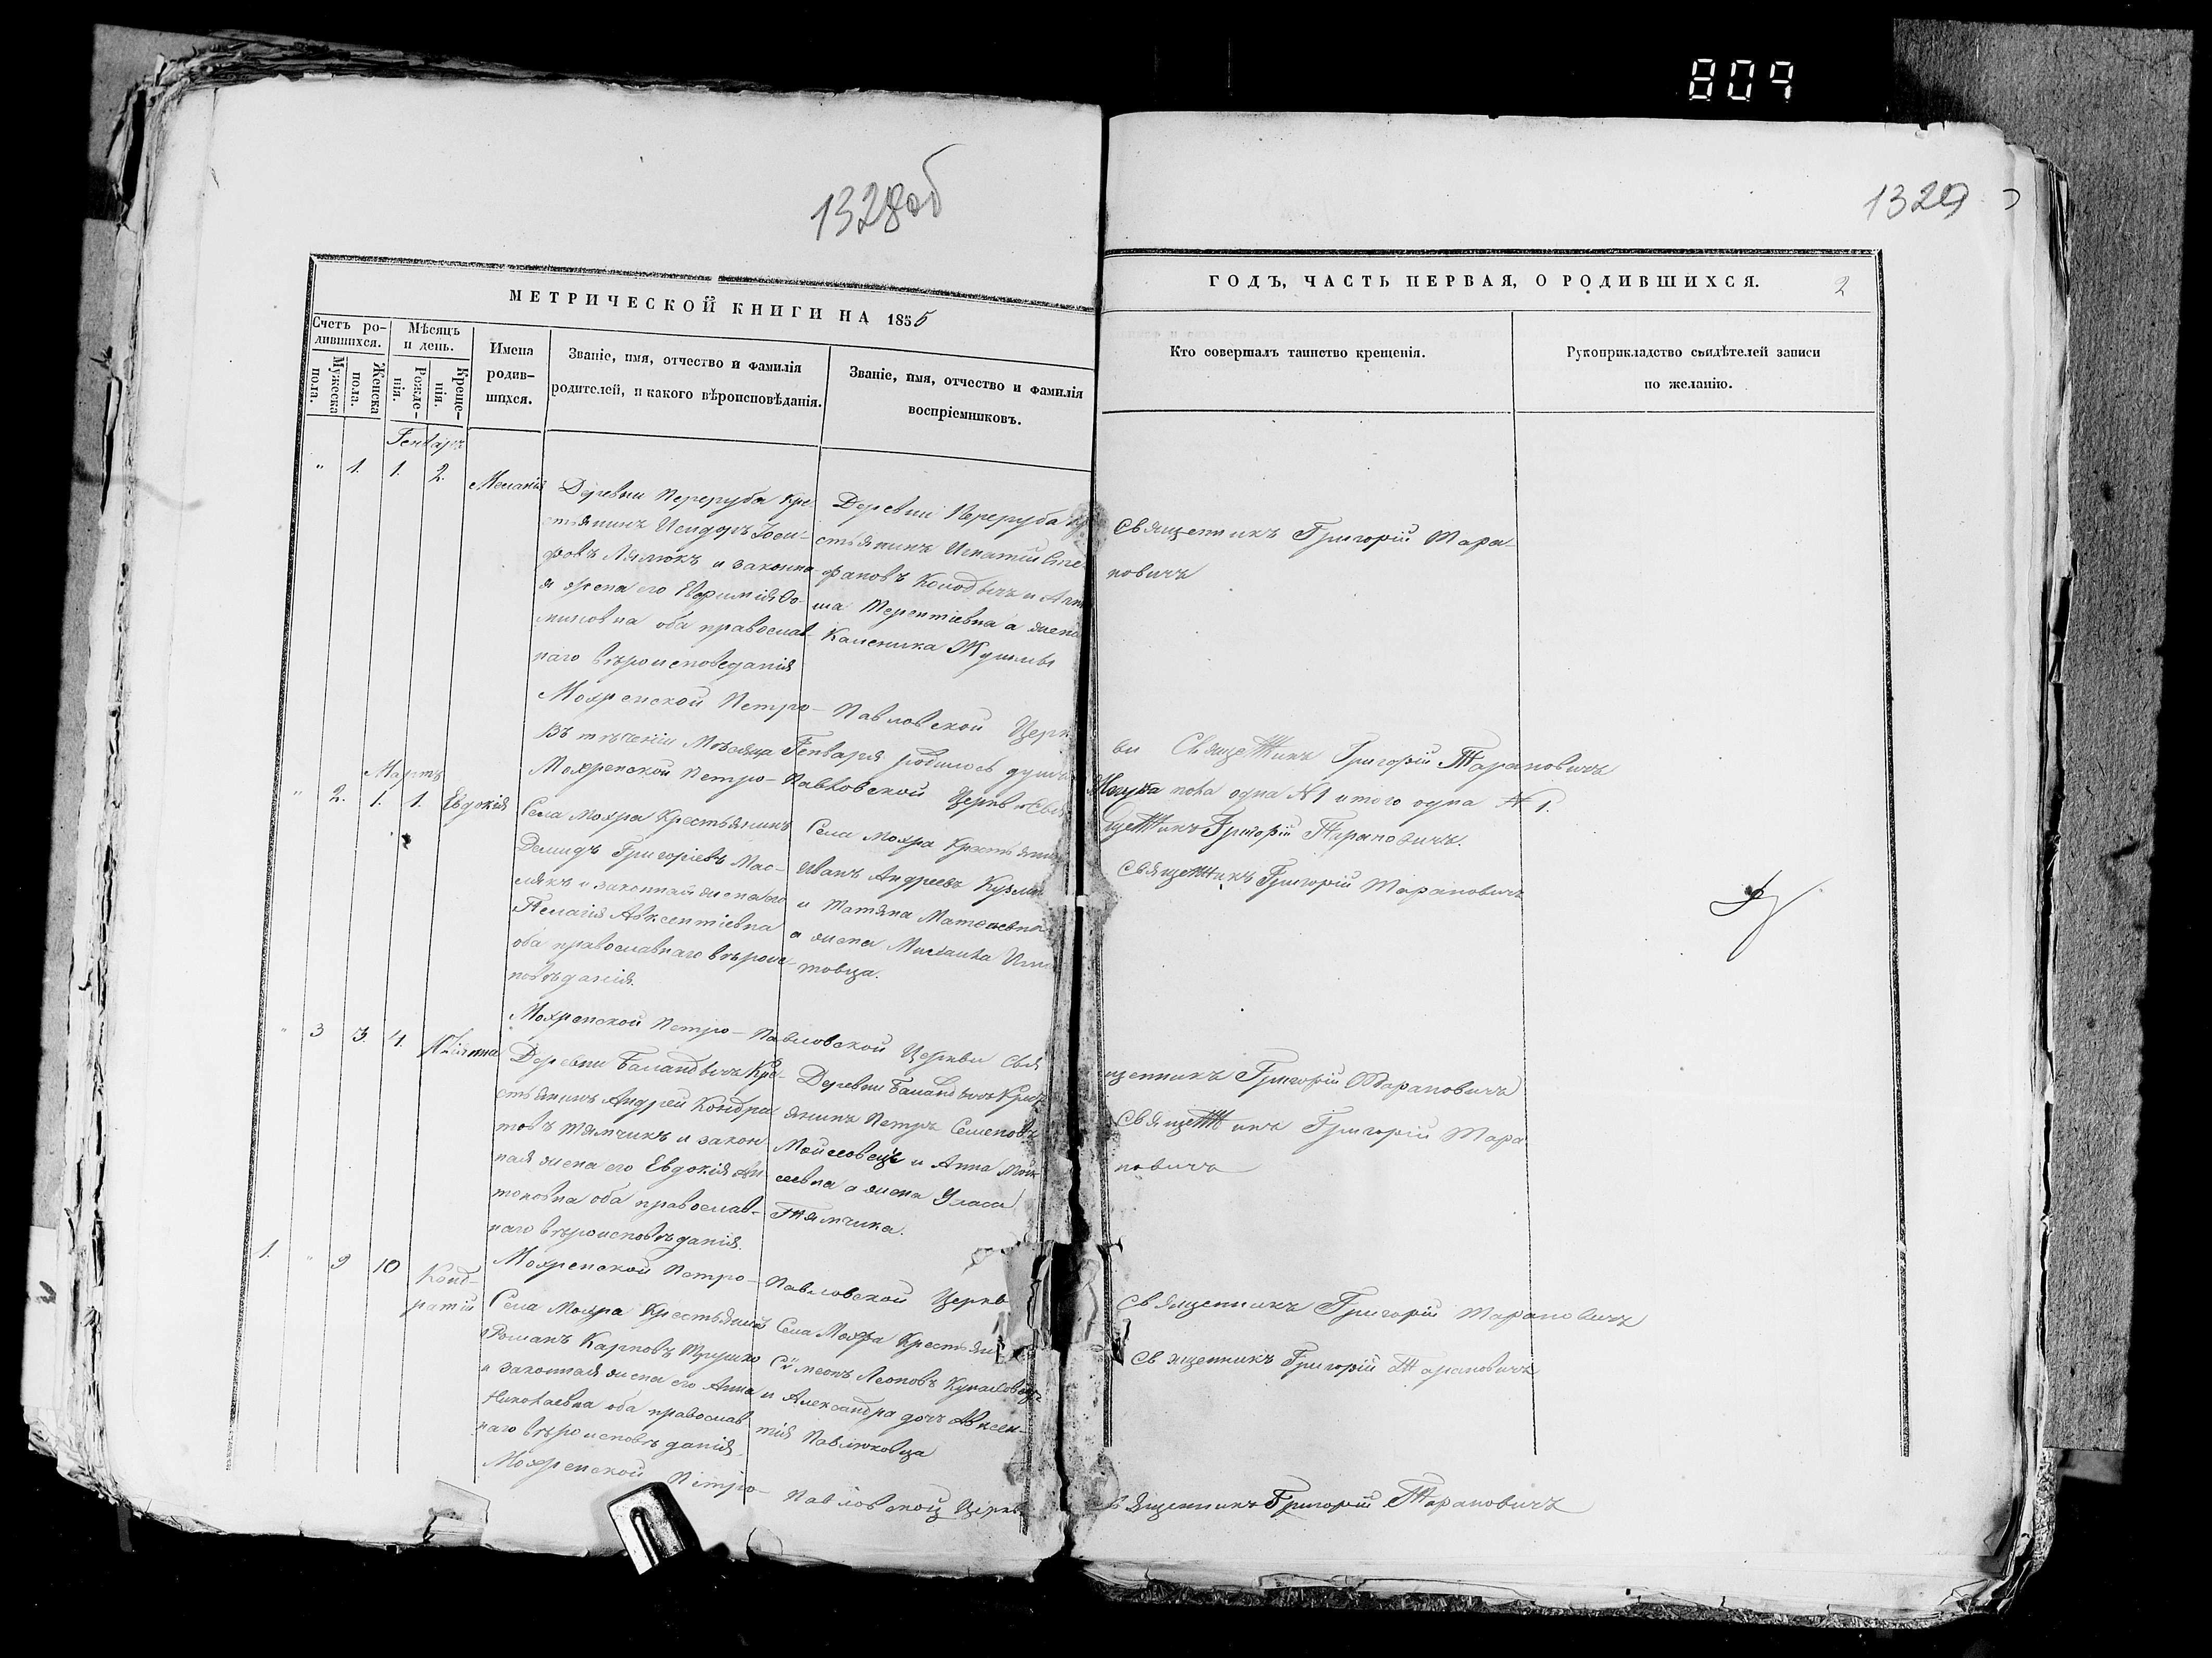 809
1328об
1329
МЕТРИЧЕСКОЙ КНИГИ НА 1855
ГОДЪ, ЧАСТЬ ПЕРВАЯ, О РОДИВШИХСЯ.
2
Счетъ ро-
дившихся.
Мужеска
пола.
Женска
пола.
Мѣсяцъ
и день.
Рожде-
нія.
Креще-
нія.
Имена
родив-
шихся.
Званіе, имя, отчество и фамилія
родителей, и какого вѣроисповѣданія.
Званіе, имя, отчество и фамилія
воспріемниковъ.
Кто совершалъ таинство крещенія.
Рукоприкладство свидѣтелей записи
по желанію.
Генваръ
" 1. 1. 2.
Меланія
Деревни Переруба кре
стьянинъ Исидоръ Іоси-
фовъ Лялюкъ и законна
я жена его Евфимія Ѳо-
миновна оба православ-
наго вѣроисповеданія
Деревни Переруба
стьянинъ Игнатій Сте
фановъ Колодычъ и
Терентіевна а жена
Каленика
Священникъ Григорій Тара-
новичъ
Мохренской Петро-Павловской Церк
ви Священникъ Григорій Тарановичъ
Въ теченіи Мѣсяца Генваря родилось душъ
пола одна № 1 итого одна № 1.
Мохренской Петро-Павловской Церкви Свя
щенникъ Григорій Тарановичъ.
Мартъ
" 2. 1. 1.
Евдокія
Села Мохра Крестьянинъ
Демидъ Григоріевъ Мас-
лякъ и законная жена его
Пелагія Авксентіевна
оба православнаго вѣроис-
повѣданія.
Села Мохра Крестьянинъ
Иванъ Андреевъ
и Татяна Матѳеевна
а жена Михаила
товца.
Священникъ Григорій Тарановичъ
Мохренской Петро-Павловской Церкви Свя
щенникъ Григорій Тарановичъ
" 3 3. 4.
Деревни Баландычъ Кре-
стьянинъ Андрей Кондра
товъ Тямчикъ и закон
ная жена его Евдокія Ан
тоновна оба православ-
наго вѣроисповѣданія.
Деревни Баландычъ Крест
янинъ Петръ Семеновъ
Мойсеовецъ и Анна
сеевна а жена Уласа
Тямчика.
Священникъ Григорій Тара
новичъ
Мохренской Петро-Павловской Церкв
Священникъ Григорій Тарановичъ
1. " 9 10
Конд-
ратій
Села Мохра Крестьянинъ
Романъ Карповъ
и законная жена его Анна
Николаевна оба православ
наго вѣроисповѣданія.
Села Мохра Крестьяни
Сѵмеонъ Леоновъ
и Александра дочъ Авксен-
тія Павлюковца
Священникъ Григорій Тарановичъ
Мохренской Петро-Павловской Церкв
Священникъ Григорій Тарановичъ